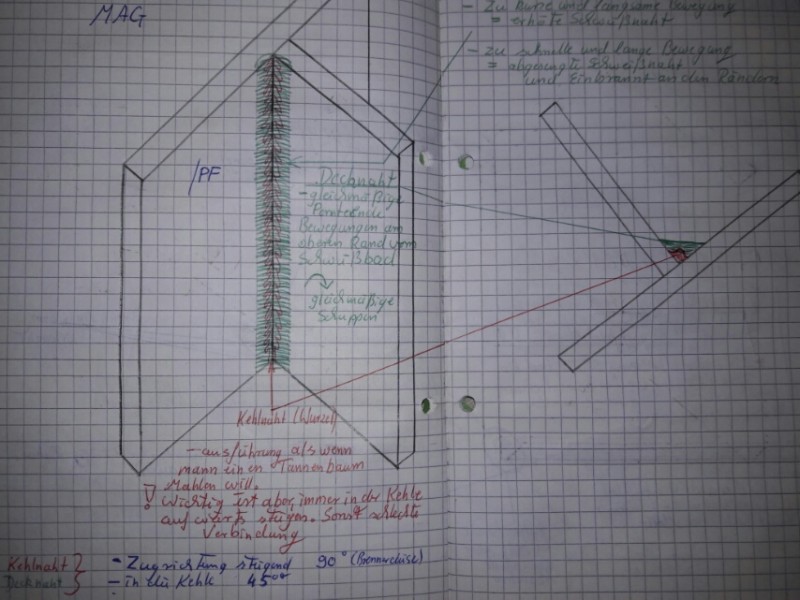 MAG
- Zu kurze und langsame Bewegung
= erhöte Schweißnaht
- zu schnelle und lange Bewegung
= abgezengte Schweißnaht
und Einbrannt an den Rändern
/PF
Decknaht
- gleichmäßige
Pendelnde
Bewegungen am
oberen Rand vom
Schweißbad
gleichmäßige
Schuppen
Kehlnaht (Wurzel)
- ausführung als wenn
mann einen Tannenbaum
Mahlen will.
! Wichtig ist aber, immer in der Kehle
aufwerts steigen. Sonst schlechte
Verbindung
Kehlnaht } - Zugrichtung steigend 90° (Brennerdüse)
Decknaht } - in die Kehle 45°